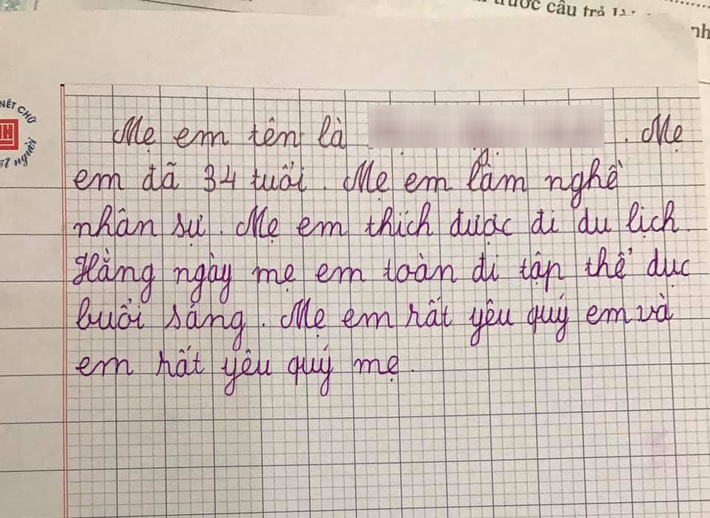 ước câu trả
nh
NÉT CHỮ
người
Mẹ em tên là . Mẹ
em đã 34 tuổi. Mẹ em làm nghề
nhân sự. Mẹ em thích được đi du lich.
Hằng ngày mẹ em toàn đi tập thể dục
buổi sáng. Mẹ em rất yêu quý em và
em rất yêu quý mẹ.